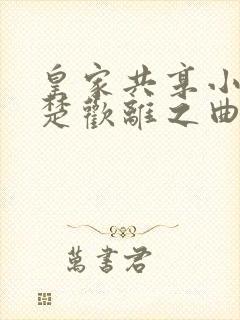 皇家共享小
楚歡離之曲
萬書君